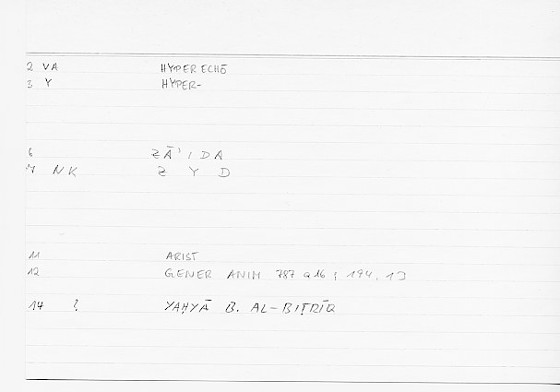 2 VA HYPERECHŌ
3 Y HYPER-
6 ZĀ'IDA
7 NK Z Y D
11 ARIST
12 GENER ANIM 787 a16 ; 194.13
14 ? YAḤYĀ B. AL-BIṬRĪQ